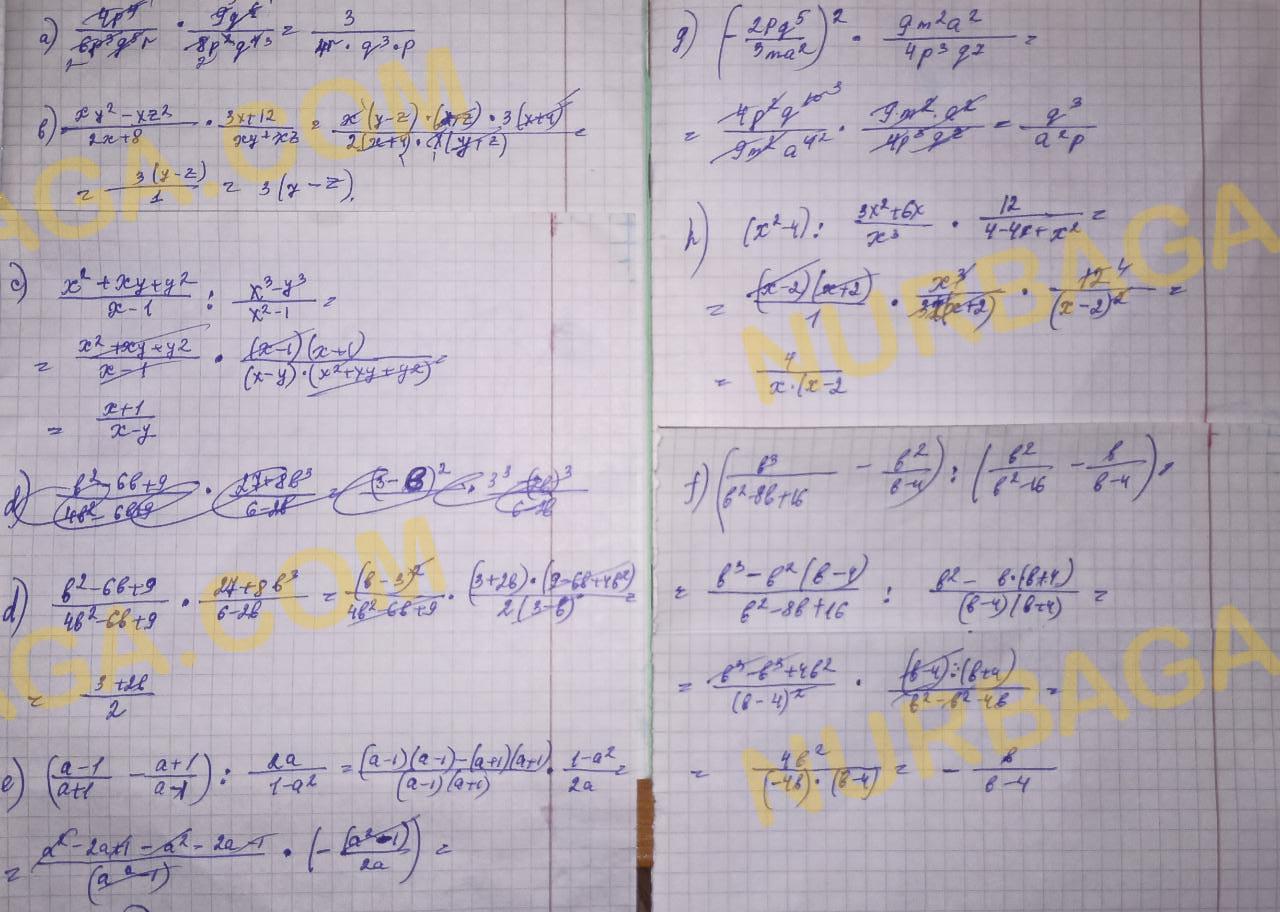 a) 4p⁴/6p³q⁵r · 9q⁶/8p²q⁴ = 3/4r · q³ · p
b) xy² - xz²/2x+8 · 3x+12/xy+xz = x(y-z)·(y+z)·3(x+4)/2(x+4)·x(y+z) =
= 3(y-z)/1 = 3(y-z).
c) x²+xy+y²/x-1 : x³-y³/x²-1 =
= x²+xy+y²/x-1 · (x-1)(x+1)/(x-y)·(x²+xy+y²) =
= x+1/x-y
d) b²-6b+9/4b²-6b+9 · 27+8b³/6-2b = (3-b)²
d) b²-6b+9/4b²-6b+9 · 27+8b³/6-2b = (b-3)²/4b²-6b+9 · (3+2b)·(9-6b+4b²)/2(3-b) =
= 3+2b/2
e) (a-1/a+1 - a+1/a-1) : 2a/1-a² = (a-1)(a-1)-(a+1)(a+1)/(a-1)(a+1) · 1-a²/2a =
= a²-2a+1-a²-2a-1/(a²-1) · (-(a²-1)/2a) =
g) (-2pq⁵/3ma²)² · 9m²a²/4p³q⁷ =
= 4p²q¹⁰/9m²a⁴ · 9m²·a²/4p³q⁷ = q³/a²p
h) (x²-4) : 3x²+6x/x³ · 12/4-4x+x² =
= (x-2)(x+2)/1 · x³/3x(x+2) · 12/(x-2)² =
= 4/x·(x-2
f) (b³/b²-8b+16 - b²/b-4) : (b²/b²-16 - b/b-4) =
= b³-b²(b-4)/b²-8b+16 : b²-b·(b+4)/(b-4)(b+4) =
= b³-b³+4b²/(b-4)² · (b-4)·(b+4)/b²-b²-4b =
= 4b²/(-4b)·(b-4) = - b/b-4
NURBAGA.COM
NURBAGA.COM
NURBAGA
NURBAGA